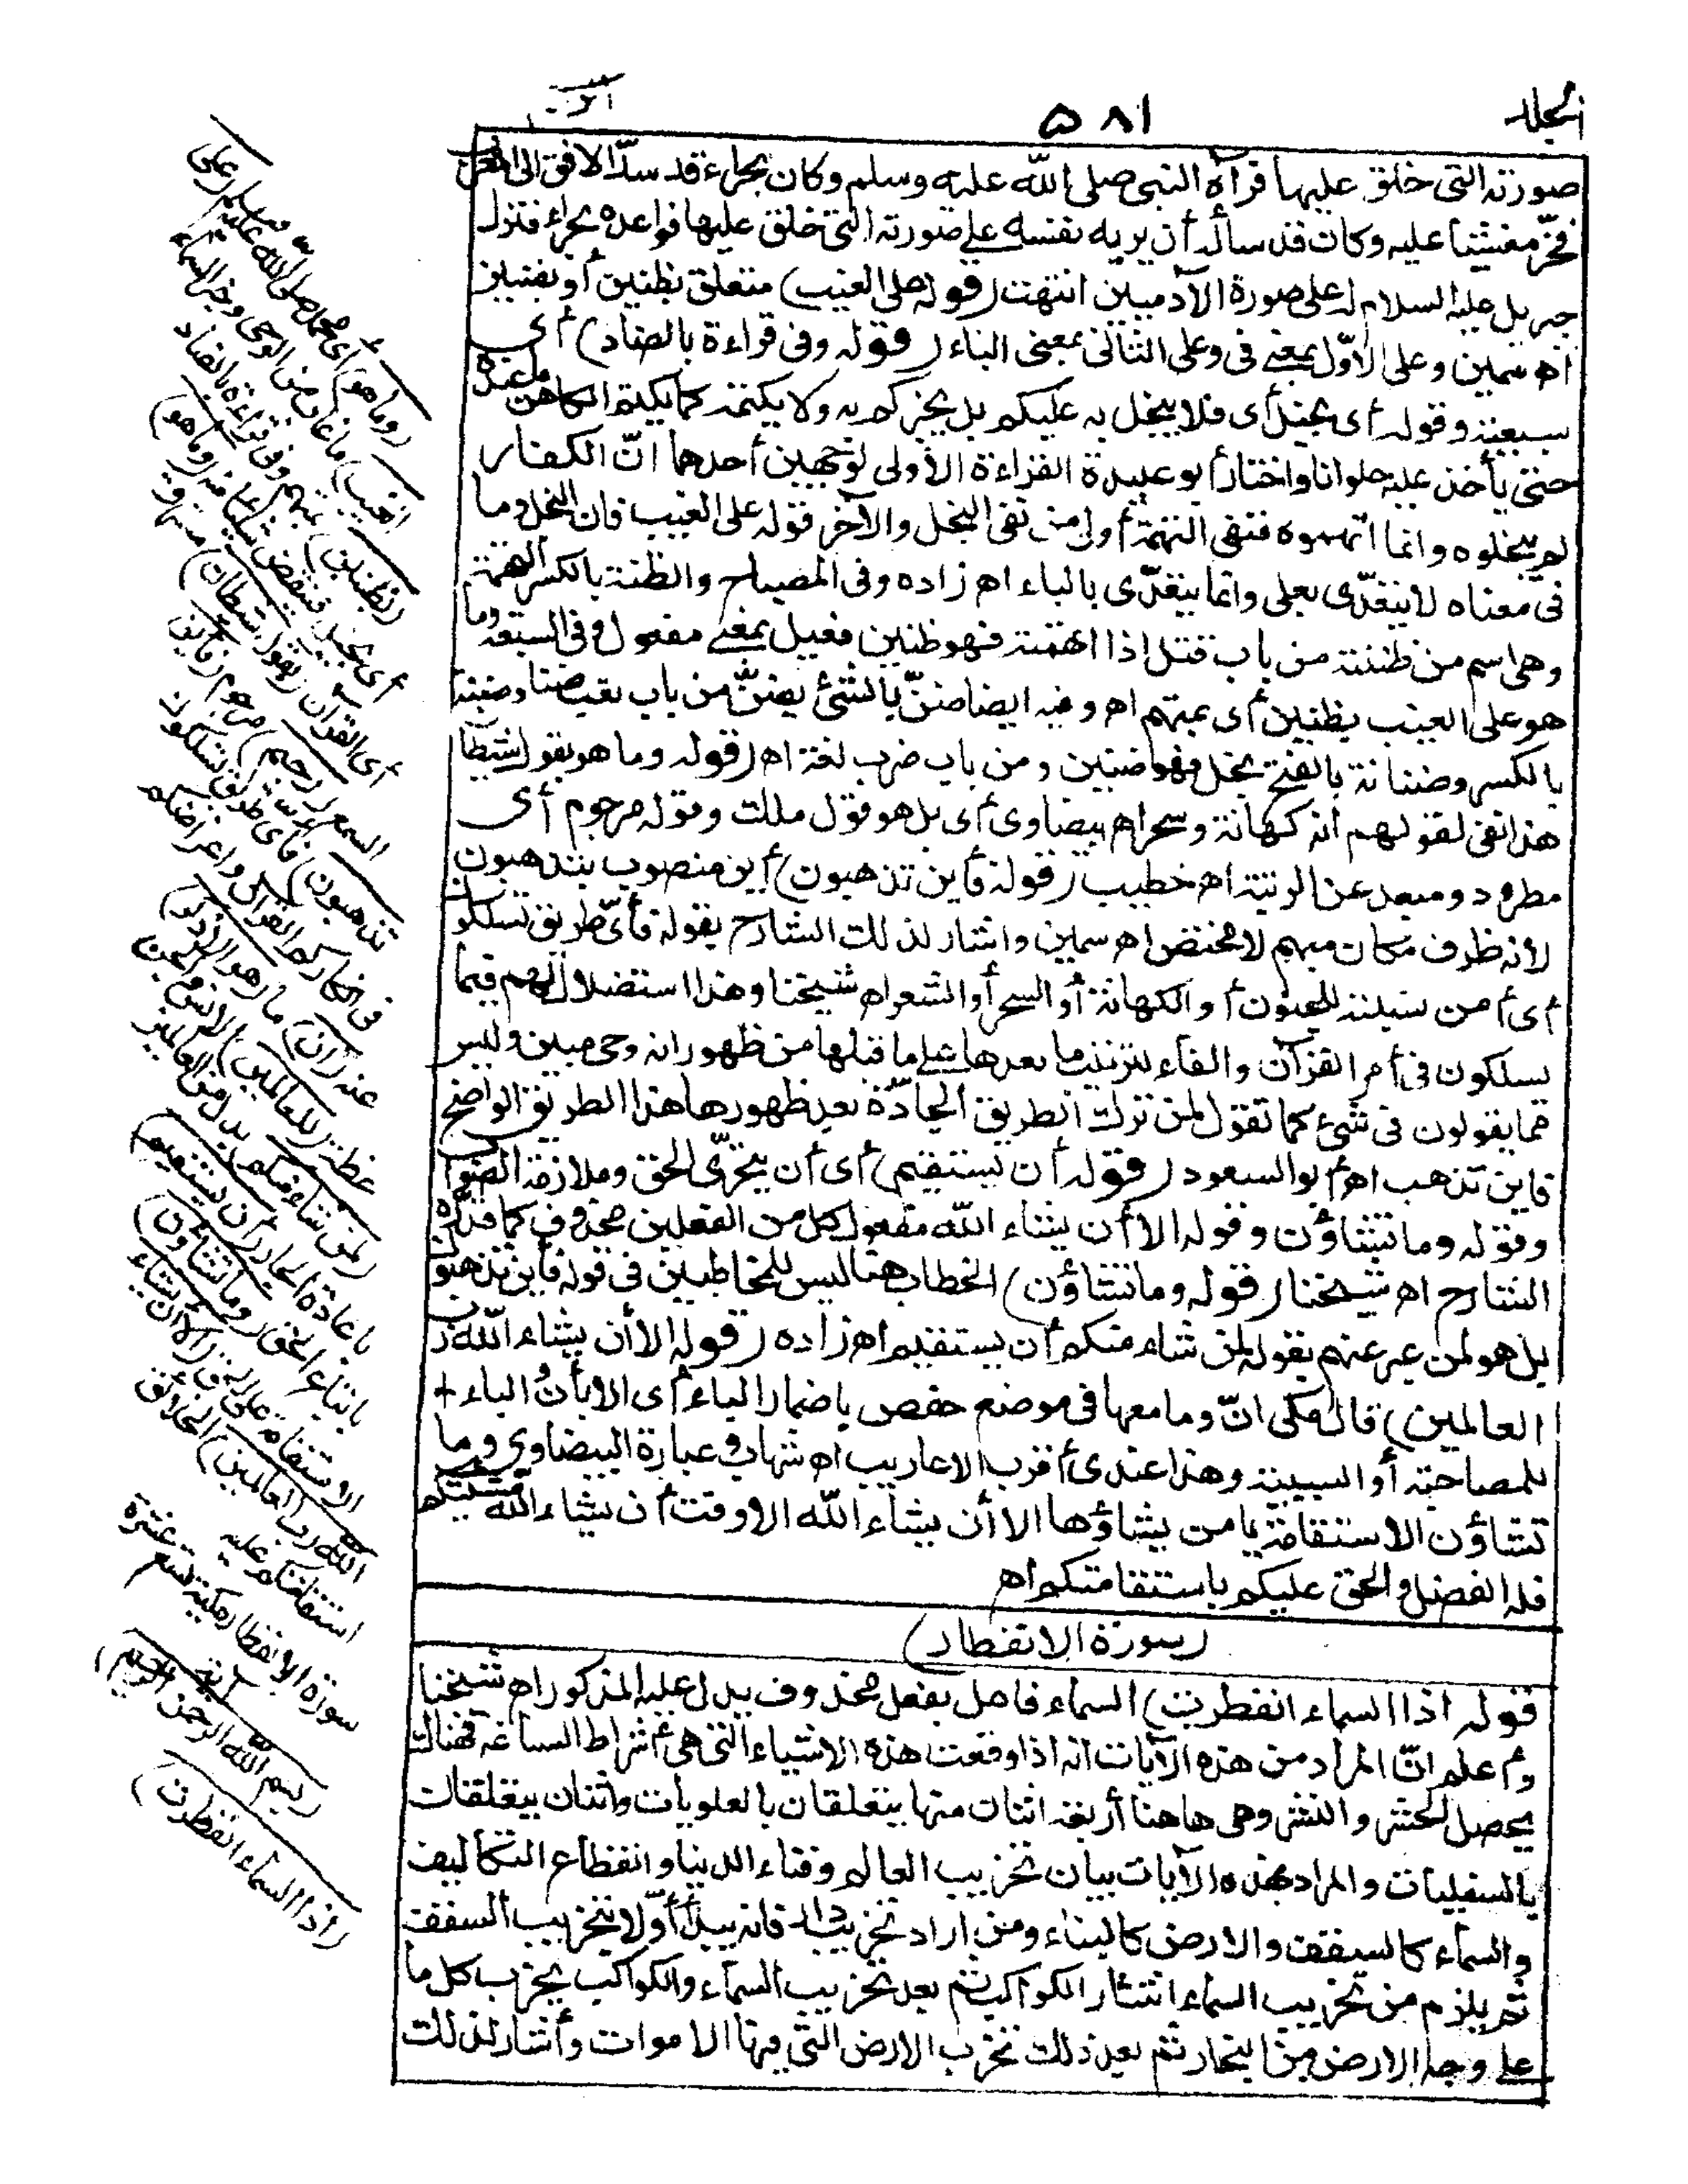 المجلد
٥٨١
صورته التى خلق عليها فرآه النبى صلى الله عليه وسلم وكان بحراء قد سدّ الافق الى المغرب
فخرّ مغشيا عليه وكان قد سأله أن يريه نفسه على صورته التى خلق عليها فواعده بحراء فنزل
جبريل عليه السلام له على صورة الآدميين انتهت (قوله على الغيب) متعلق بظنين أو بضنين
اه سمين وعلى الأوّل بمعنى فى وعلى الثانى بمعنى الباء (قوله وفى قراءة بالضاد) أى
سبعية وقوله أى بخيل أى فلا يبخل به عليكم بل يخبركم به ولا يكتمه كما يكتم الكاهن ما عنده
حتى يأخذ عليه حلوانا واختار أبو عبيدة القراءة الأولى لوجهين أحدهما انّ الكفار
لم يبخلوه وانما اتهموه فنفى التهمة أولى من نفى البخل والآخر قوله على الغيب فان البخل وما
فى معناه لا يتعدّى بعلى وانما يتعدّى بالباء اه زاده وفى المصباح والظنة بالكسر التهمة
وهى اسم من ظننته من باب قتل اذا اتهمته فهو ظنين فعيل بمعنى مفعول وفى السبعة وما
هو على الغيب بظنين أى بمتهم اه وفيه ايضا ضنّ بالشئ يضنّ من باب تعب ضنا وضنة
بالكسر وضنانة بالفتح بخل فهو ضنين ومن باب ضرب لغة اه (قوله وما هو بقول شيطان
هذا نفى لقولهم أنه كهانة وسحر اه بيضاوى أى بل هو قول ملك وقوله مرجوم أى
مطرود ومبعد عن الرتبة اه خطيب (قوله فأين تذهبون) أين منصوب بتذهبون
لأنه ظرف مكان مبهم لا مختص اه سمين واشار لذلك الشارح بقوله فأىّ طريق تسلكون
أى أمن نسبته للجنون أو الكهانة أو السحر أو الشعر اه شيخنا وهذا استضلال لهم فيما
يسلكون فى أمر القرآن والفاء لترتيب ما بعدها على ما قبلها من ظهور انه وحى مبين وليس
مما يقولون فى شئ كما تقول لمن ترك الطريق الجادّة بعد ظهورها هذا الطريق الواضح
فاين تذهب اه أبو السعود (قوله أن يستقيم) أى أن يتحرّى الحق وملازمة الصواب
وقوله وما تشاؤن وقوله الا أن يشاء الله مفعول كل من الفعلين محذوف كما قدّره
الشارح اه شيخنا (قوله وما تشاؤن) الخطاب هنا ليس للمخاطبين فى قوله فأين تذهبون
بل هو لمن عبر عنهم بقوله لمن شاء منكم أن يستقيم اه زاده (قوله الا أن يشاء الله رب
العالمين) قال مكى انّ وما معها فى موضع خفض باضمار الباء أى الا بأن والباء
للمصاحبة أو السببية وهذا عندى أقرب الاعاريب اه شهاب وعبارة البيضاوى وما
تشاؤن الاستقامة يا من يشاؤها الا أن يشاء الله الا وقت أن يشاء الله مشيئتكم
فله الفضل والحق عليكم باستقامتكم اه
(سورة الانفطار)
قوله اذا السماء انفطرت) السماء فاعل بفعل محذوف يدل عليه المذكور اه شيخنا
واعلم انّ المراد من هذه الآيات انه اذا وقعت هذه الاشياء التى هى أشراط الساعة فهناك
يحصل الحشر والنشر وهى هاهنا أربعة اثنان منها يتعلقان بالعلويات واثنان يتعلقان
بالسفليات والمراد بهذه الآيات بيان تخريب العالم وفناء الدنيا وانقطاع التكاليف
والسماء كالسقف والارض كالبناء ومن اراد تخريب دار فانه يبدأ أوّلا بتخريب السقف
ثم يلزم من تخريب السماء انتثار الكواكب ثم بعد تخريب السماء والكواكب يخرب كل ما
على وجه الارض من البحار ثم بعد ذلك تخرب الارض التى فيها الاموات وأشار لذلك
(وما هو) أى محمد صلى الله عليه وسلم (على
الغيب) ما غاب من الوحى وخبر السماء
(بظنين) بمتهم وفى قراءة بالضاد
أى بخيل فينقص شيئا منه (وما هو)
أى القرآن (بقول شيطان) مسترق
السمع (رجيم) مرجوم (فأين
تذهبون) فأى طريق تسلكون
فى انكاركم القرآن واعراضكم
عنه (ان) ما (هو الا ذكر)
عظة (للعالمين) الانس والجن
(لمن شاء منكم) بدل من العالمين
باعادة الجار (أن يستقيم)
باتباع الحق (وما تشاؤن)
الاستقامة على الحق (الا أن يشاء
الله رب العالمين) الخلائق
استقامتكم عليه
سورة الانفطار مكية تسع عشرة
آية
(بسم الله الرحمن الرحيم)
(اذا السماء انفطرت)